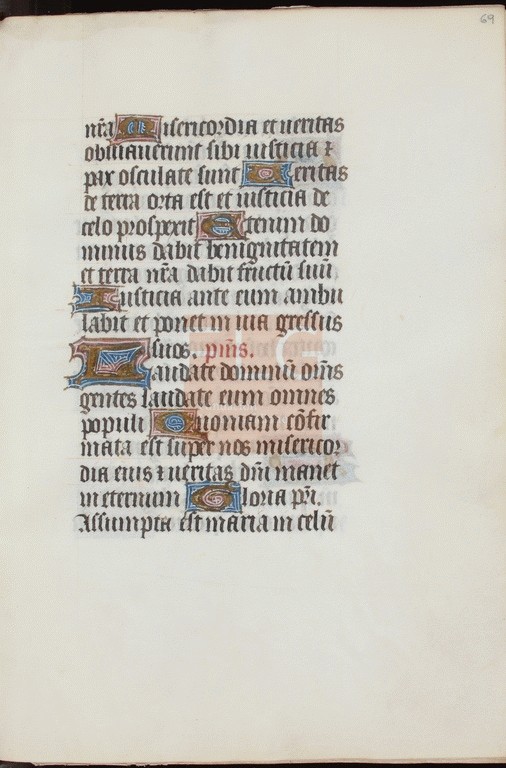 69
nr̄a Misericordia et ueritas
obuiauerunt sibi iusticia ⁊
pax osculate sunt Ueritas
de terra orta est et iusticia de
celo prospexit Etenim do
minus dabit benignitatem
et terra nr̄a dabit fructū suū
Iusticia ante eum ambu
labit et ponet in uia gressus
suos. ps̄ms.
Laudate dominū om̄s
gentes laudate eum omnes
populi Quoniam cōfir
mata est super nos misericor
dia eius ⁊ ueritas dn̄i manet
in eternum Gloria pr̄i.
Assumpta est maria in celū